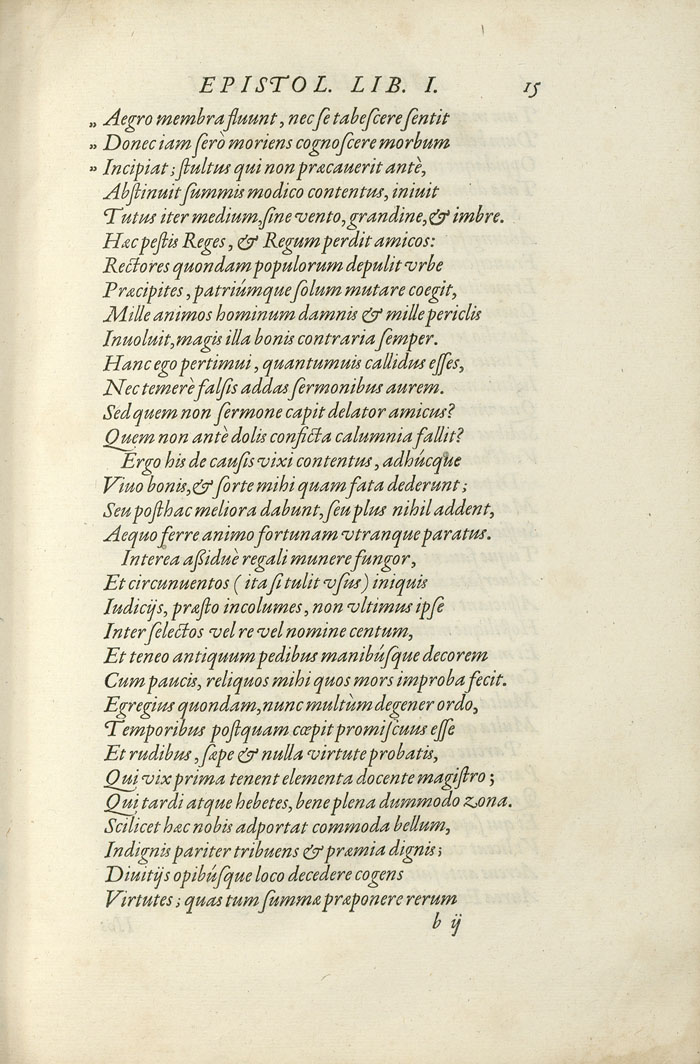 EPISTOL. LIB. I. 15
„ Aegro membra fluunt, nec ſe tabeſcere ſentit
„ Donec iam ſerò moriens cognoſcere morbum
„ Incipiat; ſtultus qui non præcauerit antè,
Abſtinuit ſummis modico contentus, iniuit
Tutus iter medium, ſine vento, grandine, & imbre.
Hæc peſtis Reges, & Regum perdit amicos:
Rectores quondam populorum depulit vrbe
Præcipites, patriúmque ſolum mutare coegit,
Mille animos hominum damnis & mille periclis
Inuoluit, magis illa bonis contraria ſemper.
Hanc ego pertimui, quantumuis callidus eſſes,
Nec temerè falſis addas ſermonibus aurem.
Sed quem non ſermone capit delator amicus?
Quem non antè dolis conficta calumnia fallit?
Ergo his de cauſis vixi contentus, adhúcque
Viuo bonis, & ſorte mihi quam fata dederunt;
Seu poſthac meliora dabunt, ſeu plus nihil addent,
Aequo ferre animo fortunam vtranque paratus.
Interea aßiduè regali munere fungor,
Et circunuentos (ita ſi tulit vſus) iniquis
Iudicijs, præſto incolumes, non vltimus ipſe
Inter ſelectos vel re vel nomine centum,
Et teneo antiquum pedibus manibúſque decorem
Cum paucis, reliquos mihi quos mors improba fecit.
Egregius quondam, nunc multùm degener ordo,
Temporibus poſtquam cœpit promiſcuus eſſe
Et rudibus, ſæpe & nulla virtute probatis,
Qui vix prima tenent elementa docente magiſtro;
Qui tardi atque hebetes, bene plena dummodo zona.
Scilicet hæc nobis adportat commoda bellum,
Indignis pariter tribuens & præmia dignis;
Diuitijs opibúſque loco decedere cogens
Virtutes; quas tum ſummæ præponere rerum
b ij